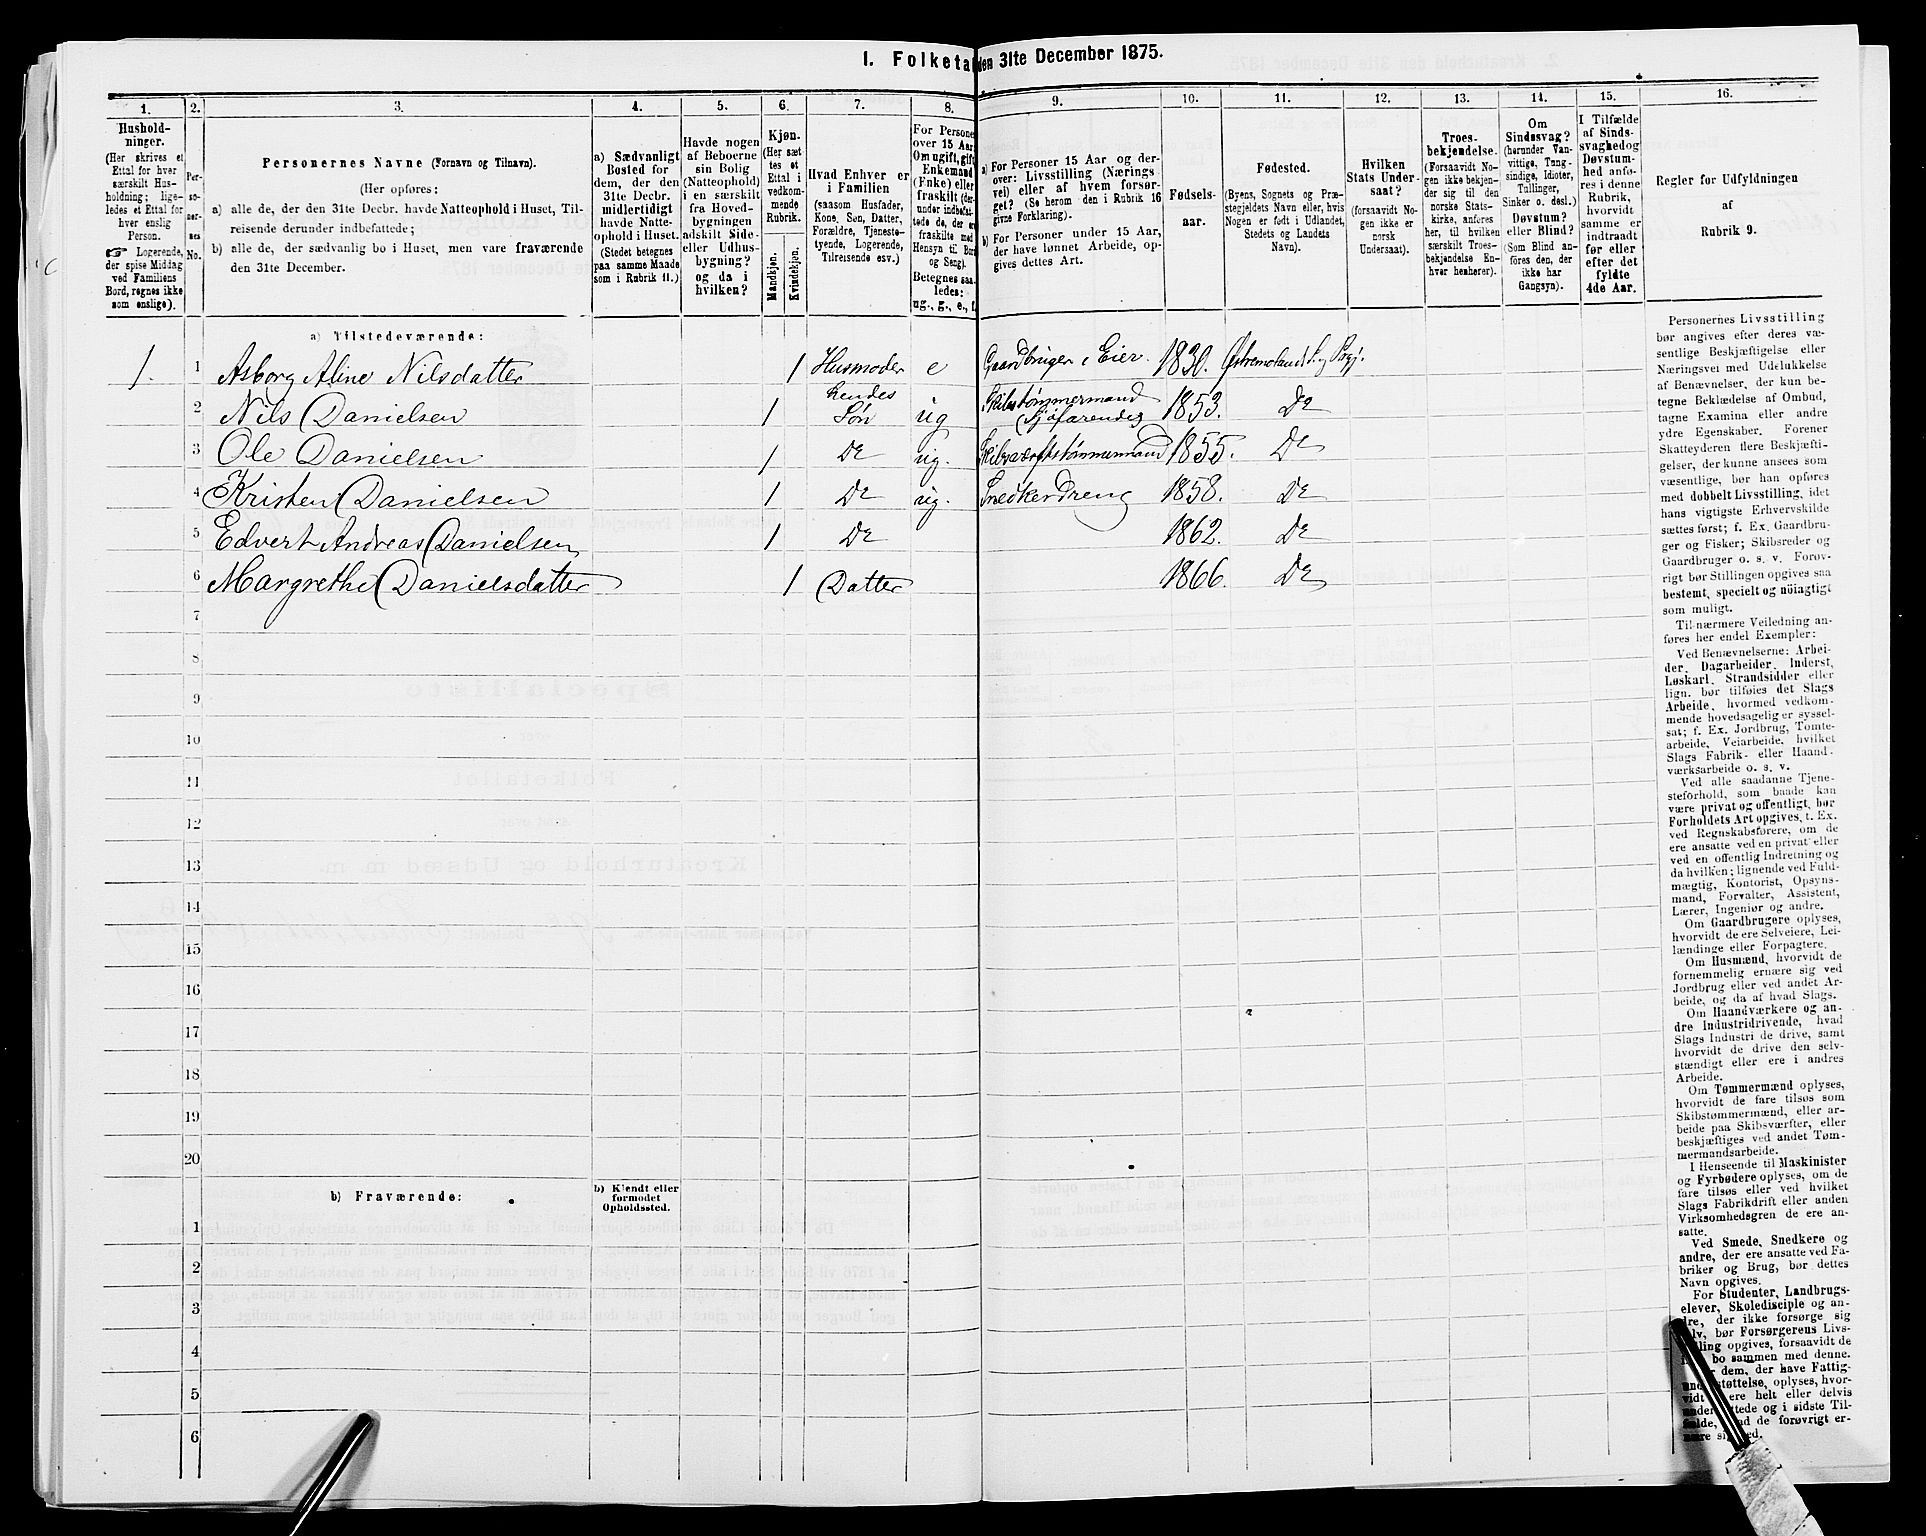 1. Folketal den 31te December 1875.
1. 2. 3. 4. 5. 6. 7. 8. 9. 10. 11. 12. 13. 14. 15. 16.
Hushold-
ninger.
(Her skrives et
Ettal for hver
særskilt Hus-
holdning; lige-
ledes et Ettal for
hver enslig
Person.
☞ Logerende,
der spise Middag
ved Familiens
Bord, regnes ikke
som enslige).
Per-
so-
ner-
nes
No.
Personernes Navne (Fornavn og Tilnavn).
(Her opføres:
a) alle de, der den 31te Decbr. havde Natteophold i Huset, Til-
reisende derunder indbefattede;
b) alle de, der sædvanlig bo i Huset, men vare fraværende
den 31te December.
a) Sædvanligt
Bosted for
dem, der den
31te Decbr.
midlertidigt
havde Natte-
ophold i Huset.
(Stedet betegnes
paa samme Maade
som i Rubrik 11.)
Havde nogen
af Beboerne
sin Bolig
(Natteophold)
i en særskilt
fra Hoved-
bygningen
adskilt Side-
eller Udhus-
bygning?
og da i
hvilken?
Kjøn.
(Her sæt
tes et
Ettal i
vedkom-
mende
Rubrik.
Mandkjøn.
Kvindekjøn.
Hvad Enhver er
i Familien
(saasom Husfader,
Kone, Søn, Datter,
Forældre, Tjeneste-
tyende, Logerende,
Tilreisende osv.)
For Persone
over 15 Aar
Om ugift, gift
Enkemand
(Enke) eller
fraskilt (der-
under indbefat-
tede de, der ere
fraskilte med
Hensyn til Bord
og Seng).
Betegnes saa-
ledes:
ug., g., e., f.
a) For Personer 15 Aar og der-
over: Livsstilling (Nærings-
vei) eller af hvem forsør-
get? (Se herom den i Rubrik 16
givne Forklaring).
b) For Personer under 15 Aar,
der have lønnet Arbeide, op-
gives dettes Art.
Fødsels-
aar.
Fødested.
(Byens, Sognets og Præ-
stegjeldets Navn eller, hvis
Nogen er født i Udlandet,
Stedets og Landets
Navn).
Hvilken
Stats Under-
saat?
(forsaavidt No-
gen ikke er
norsk
Undersaat).
Troes-
bekjendelse.
(Forsaavidt No-
gen ikke bekjen-
der sig til den
norske Stats-
kirke, anføres
her, til hvilken
særskilt Troes-
bekjendelse En-
hver henhører).
Om
Sindssvag?
(herunder Van-
vittige, Tung-
sindige, Idioter,
Tullinger,
Sinker o. desl.)
Døvstum?
eller Blind?
(Som Blind an-
føres den, der
ikke har
Gangsyn).
I Tilfælde
af Sinds-
svaghed og
Døvstum-
hed anfø-
res i denne
Rubrik,
hvorvidt
samme er
indtraadt
før eller
efter det
fyldte
4de Aar.
Regler for Udfyldningen
af
Rubrik 9.
a) Tilstedeværende:
1. 1 Asborg Aline Nilsdatter 1 Husmoder e Gaardbruger i Eier. 1830.
2 Nils Danielsen 1 hendes Søn ug Skibstømmermand (sjøfarende) 1853. Do
3 Ole Danielsen 1 Do ug. Skibsværftstømmermand 1855. Do
4 Kristen Danielsen 1 Do ug. Snedkerdreng 1858. Do
5 Edvert Andreas Danielsen 1 Do 1862. Do
6 Margrethe Danielsdatter 1 Datter 1866. Do
7
8
9
10
11
12
13
14
15
16
17
18
19
20
b) Fraværende: b) Kjendt eller
formodet
Opholdssted.
1
2
3
4
5
6
Personernes Livsstilling
bør angives efter deres væ-
sentlige Beskjæftigelse eller
Næringsvei med Udelukkelse
af Benævnelser, der kun be-
tegne Beklædelse af Ombud,
tagne Examina eller andre
ydre Egenskaber. Forener
Skatteyderen flere Beskjæfti-
gelser, der kunne ansees som
væsentlige, bør han opføres
med dobbelt Livsstilling, idet
hans vigtigste Erhvervskilde
sættes først; f. Ex. Gaardbru-
ger og Fisker; Skibsreder og
Gaardbruger o. s. v. Forøv-
rigt bør Stillingen opgives saa
bestemt, specielt og nöiagtigt
som muligt.
Til nærmere Veiledning an-
føres her endel Exempler:
Ved Benævnelserne: Arbei-
der, Dagarbeider, Inderst,
Løskarl, Strandsidder eller
lign. bør tilføies det Slags
Arbeide, hvormed vedkom-
mende hovedsagelig er syssel-
sat; f. Ex. Jordbrug, Tomte-
arbeide, Veiarbeide, hvilket
Slags Fabrik- eller Haand-
værksarbeide o. s. v.
Ved alle saadanne Tjene-
steforhold, som baade kan
være privat og offentligt, bør
Forholdets Art opgives, t. Ex.
ved Regnskabsførere, om de
ere ansatte ved en privat eller
ved en offentlig Indretning og
da hvilken; lignende ved Fuld-
mægtig, Kontorist, Opsyns-
mand, Forvalter, Assistent,
Lærer, Ingeniør og andre.
Om Gaardbrugere oplyses,
hvorvidt de ere Selveiere, Lei-
lændinge eller Forpagtere.
Om Husmænd, hvorvidt de
fornemmelig ernære sig ved
Jordbrug eller ved andet Ar-
beide, og da af hvad Slags.
Om Haandværkere og an-
dre Industridrivende, hvad
Slags Industri de drive, samt
hvorvidt de drive den selv-
stændigt eller ere i andres
Arbeide.
Om Tømmermænd oplyses,
hvorvidt de fare tilsøs som
Skibstømmermænd, eller ar-
beide paa Skibsværfter, eller
beskjæftiges ved andet Tøm-
mermandsarbeide.
I Henseende til Maskinister
og Fyrbødere oplyses, om de
fare tilsøs eller ved hvilket
Slags Fabrikdrift eller anden
Virksomhedsgren de ere an-
satte.
Ved Smede, Snedkere og
andre, der ere ansatte ved Fa-
briker og Brug, bør dettes
Navn opgives.
For Studenter, Landbrugs-
elever, Skoledisciple og an-
dre, der ikke forsørge sig
bør Forsørgerens Livs-
opgives, forsaavidt de
bo sammen med denne.
dem, der have Fattig-
hvor-
ere helt eller delvis
og i sidste Til-
de forøvrigt er-